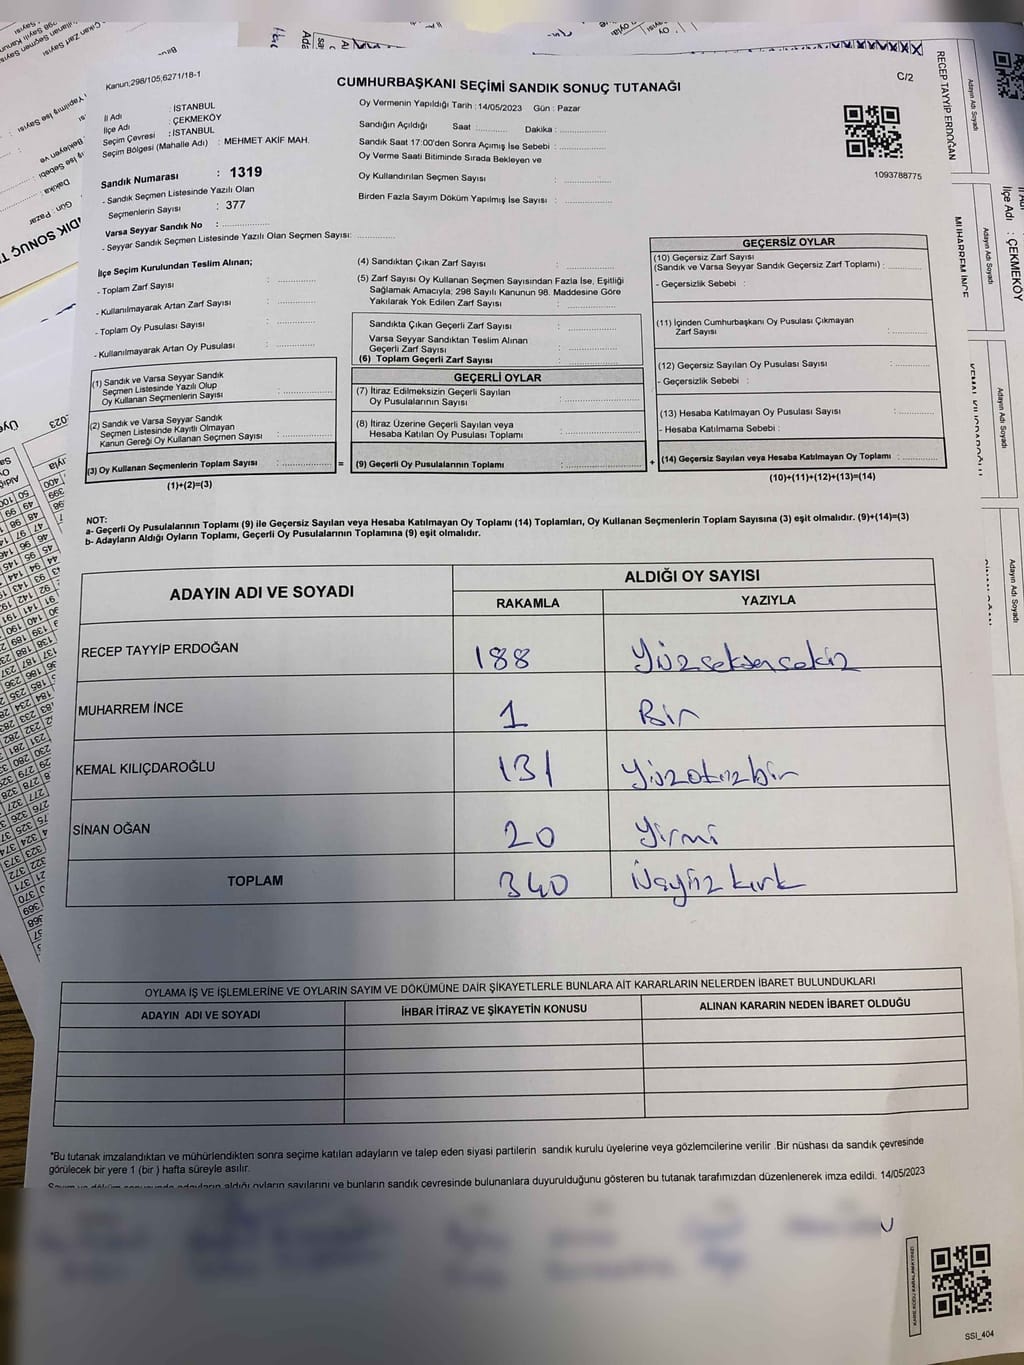 Kanun;298/105,6271/18-1
CUMHURBAŞKANI SEÇİMİ SANDIK SONUÇ TUTANAĞI
C/2
İl Adı : İSTANBUL
İlçe Adı : ÇEKMEKÖY
Seçim Çevresi : İSTANBUL
Seçim Bölgesi (Mahalle Adı) : MEHMET AKİF MAH.
Sandık Numarası : 1319
- Sandık Seçmen Listesinde Yazılı Olan
Seçmenlerin Sayısı : 377
Varsa Seyyar Sandık No :
- Seyyar Sandık Seçmen Listesinde Yazılı Olan Seçmen Sayısı:
Oy Vermenin Yapıldığı Tarih : 14/05/2023 Gün : Pazar
Sandığın Açıldığı Saat : Dakika :
Sandık Saat 17:00'den Sonra Açımış İse Sebebi :
Oy Verme Saati Bitiminde Sırada Bekleyen ve
Oy Kullandırılan Seçmen Sayısı :
Birden Fazla Sayım Döküm Yapılmış İse Sayısı :
1093788775
İlçe Seçim Kurulundan Teslim Alınan;
- Toplam Zarf Sayısı :
- Kullanılmayarak Artan Zarf Sayısı :
- Toplam Oy Pusulası Sayısı :
- Kullanılmayarak Artan Oy Pusulası :
(1) Sandık ve Varsa Seyyar Sandık
Seçmen Listesinde Yazılı Olup
Oy Kullanan Seçmenlerin Sayısı :
(2) Sandık ve Varsa Seyyar Sandık
Seçmen Listesinde Kayıtlı Olmayan
Kanun Gereği Oy Kullanan Seçmen Sayısı :
(3) Oy Kullanan Seçmenlerin Toplam Sayısı :
(1)+(2)=(3)
(4) Sandıktan Çıkan Zarf Sayısı :
(5) Zarf Sayısı Oy Kullanan Seçmen Sayısından Fazla İse, Eşitliği
Sağlamak Amacıyla; 298 Sayılı Kanunun 98. Maddesine Göre
Yakılarak Yok Edilen Zarf Sayısı :
Sandıkta Çıkan Geçerli Zarf Sayısı :
Varsa Seyyar Sandıktan Teslim Alınan
Geçerli Zarf Sayısı :
(6) Toplam Geçerli Zarf Sayısı :
GEÇERLİ OYLAR
(7) İtiraz Edilmeksizin Geçerli Sayılan
Oy Pusulalarının Sayısı :
(8) İtiraz Üzerine Geçerli Sayılan veya
Hesaba Katılan Oy Pusulası Toplamı :
= (9) Geçerli Oy Pusulalarının Toplamı :
GEÇERSİZ OYLAR
(10) Geçersiz Zarf Sayısı
(Sandık ve Varsa Seyyar Sandık Geçersiz Zarf Toplamı) :
- Geçersizlik Sebebi :
(11) İçinden Cumhurbaşkanı Oy Pusulası Çıkmayan
Zarf Sayısı :
(12) Geçersiz Sayılan Oy Pusulası Sayısı :
- Geçersizlik Sebebi :
(13) Hesaba Katılmayan Oy Pusulası Sayısı :
- Hesaba Katılmama Sebebi :
+ (14) Geçersiz Sayılan veya Hesaba Katılmayan Oy Toplamı :
(10)+(11)+(12)+(13)=(14)
NOT:
a- Geçerli Oy Pusulalarının Toplamı (9) ile Geçersiz Sayılan veya Hesaba Katılmayan Oy Toplamı (14) Toplamları, Oy Kullanan Seçmenlerin Toplam Sayısına (3) eşit olmalıdır. (9)+(14)=(3)
b- Adayların Aldığı Oyların Toplamı, Geçerli Oy Pusulalarının Toplamına (9) eşit olmalıdır.
ADAYIN ADI VE SOYADI
ALDIĞI OY SAYISI
RAKAMLA YAZIYLA
RECEP TAYYİP ERDOĞAN 188 Yüzseksensekiz
MUHARREM İNCE 1 Bir
KEMAL KILIÇDAROĞLU 131 Yüzotuzbir
SİNAN OĞAN 20 Yirmi
TOPLAM 340 Üçyüz kırk
OYLAMA İŞ VE İŞLEMLERİNE VE OYLARIN SAYIM VE DÖKÜMÜNE DAİR ŞİKAYETLERLE BUNLARA AİT KARARLARIN NELERDEN İBARET BULUNDUKLARI
ADAYIN ADI VE SOYADI İHBAR İTİRAZ VE ŞİKAYETİN KONUSU ALINAN KARARIN NEDEN İBARET OLDUĞU
"Bu tutanak imzalandıktan ve mühürlendikten sonra seçime katılan adayların ve talep eden siyasi partilerin sandık kurulu üyelerine veya gözlemcilerine verilir .Bir nüshası da sandık çevresinde
görülecek bir yere 1 (bir ) hafta süreyle asılır.
Sayım ve döküm sonucunda adayların aldığı oyların sayılarını ve bunların sandık çevresinde bulunanlara duyurulduğunu gösteren bu tutanak tarafımızdan düzenlenerek imza edildi. 14/05/2023
SSI_404
Adayın Adı Soyadı
RECEP TAYYİP ERDOĞAN
Adayın Adı Soyadı
MUHARREM İNCE
İlçe Adı : ÇEKMEKÖY
Adayın Adı Soyadı
KEMAL KILIÇDAROĞLU
Adayın Adı Soyadı